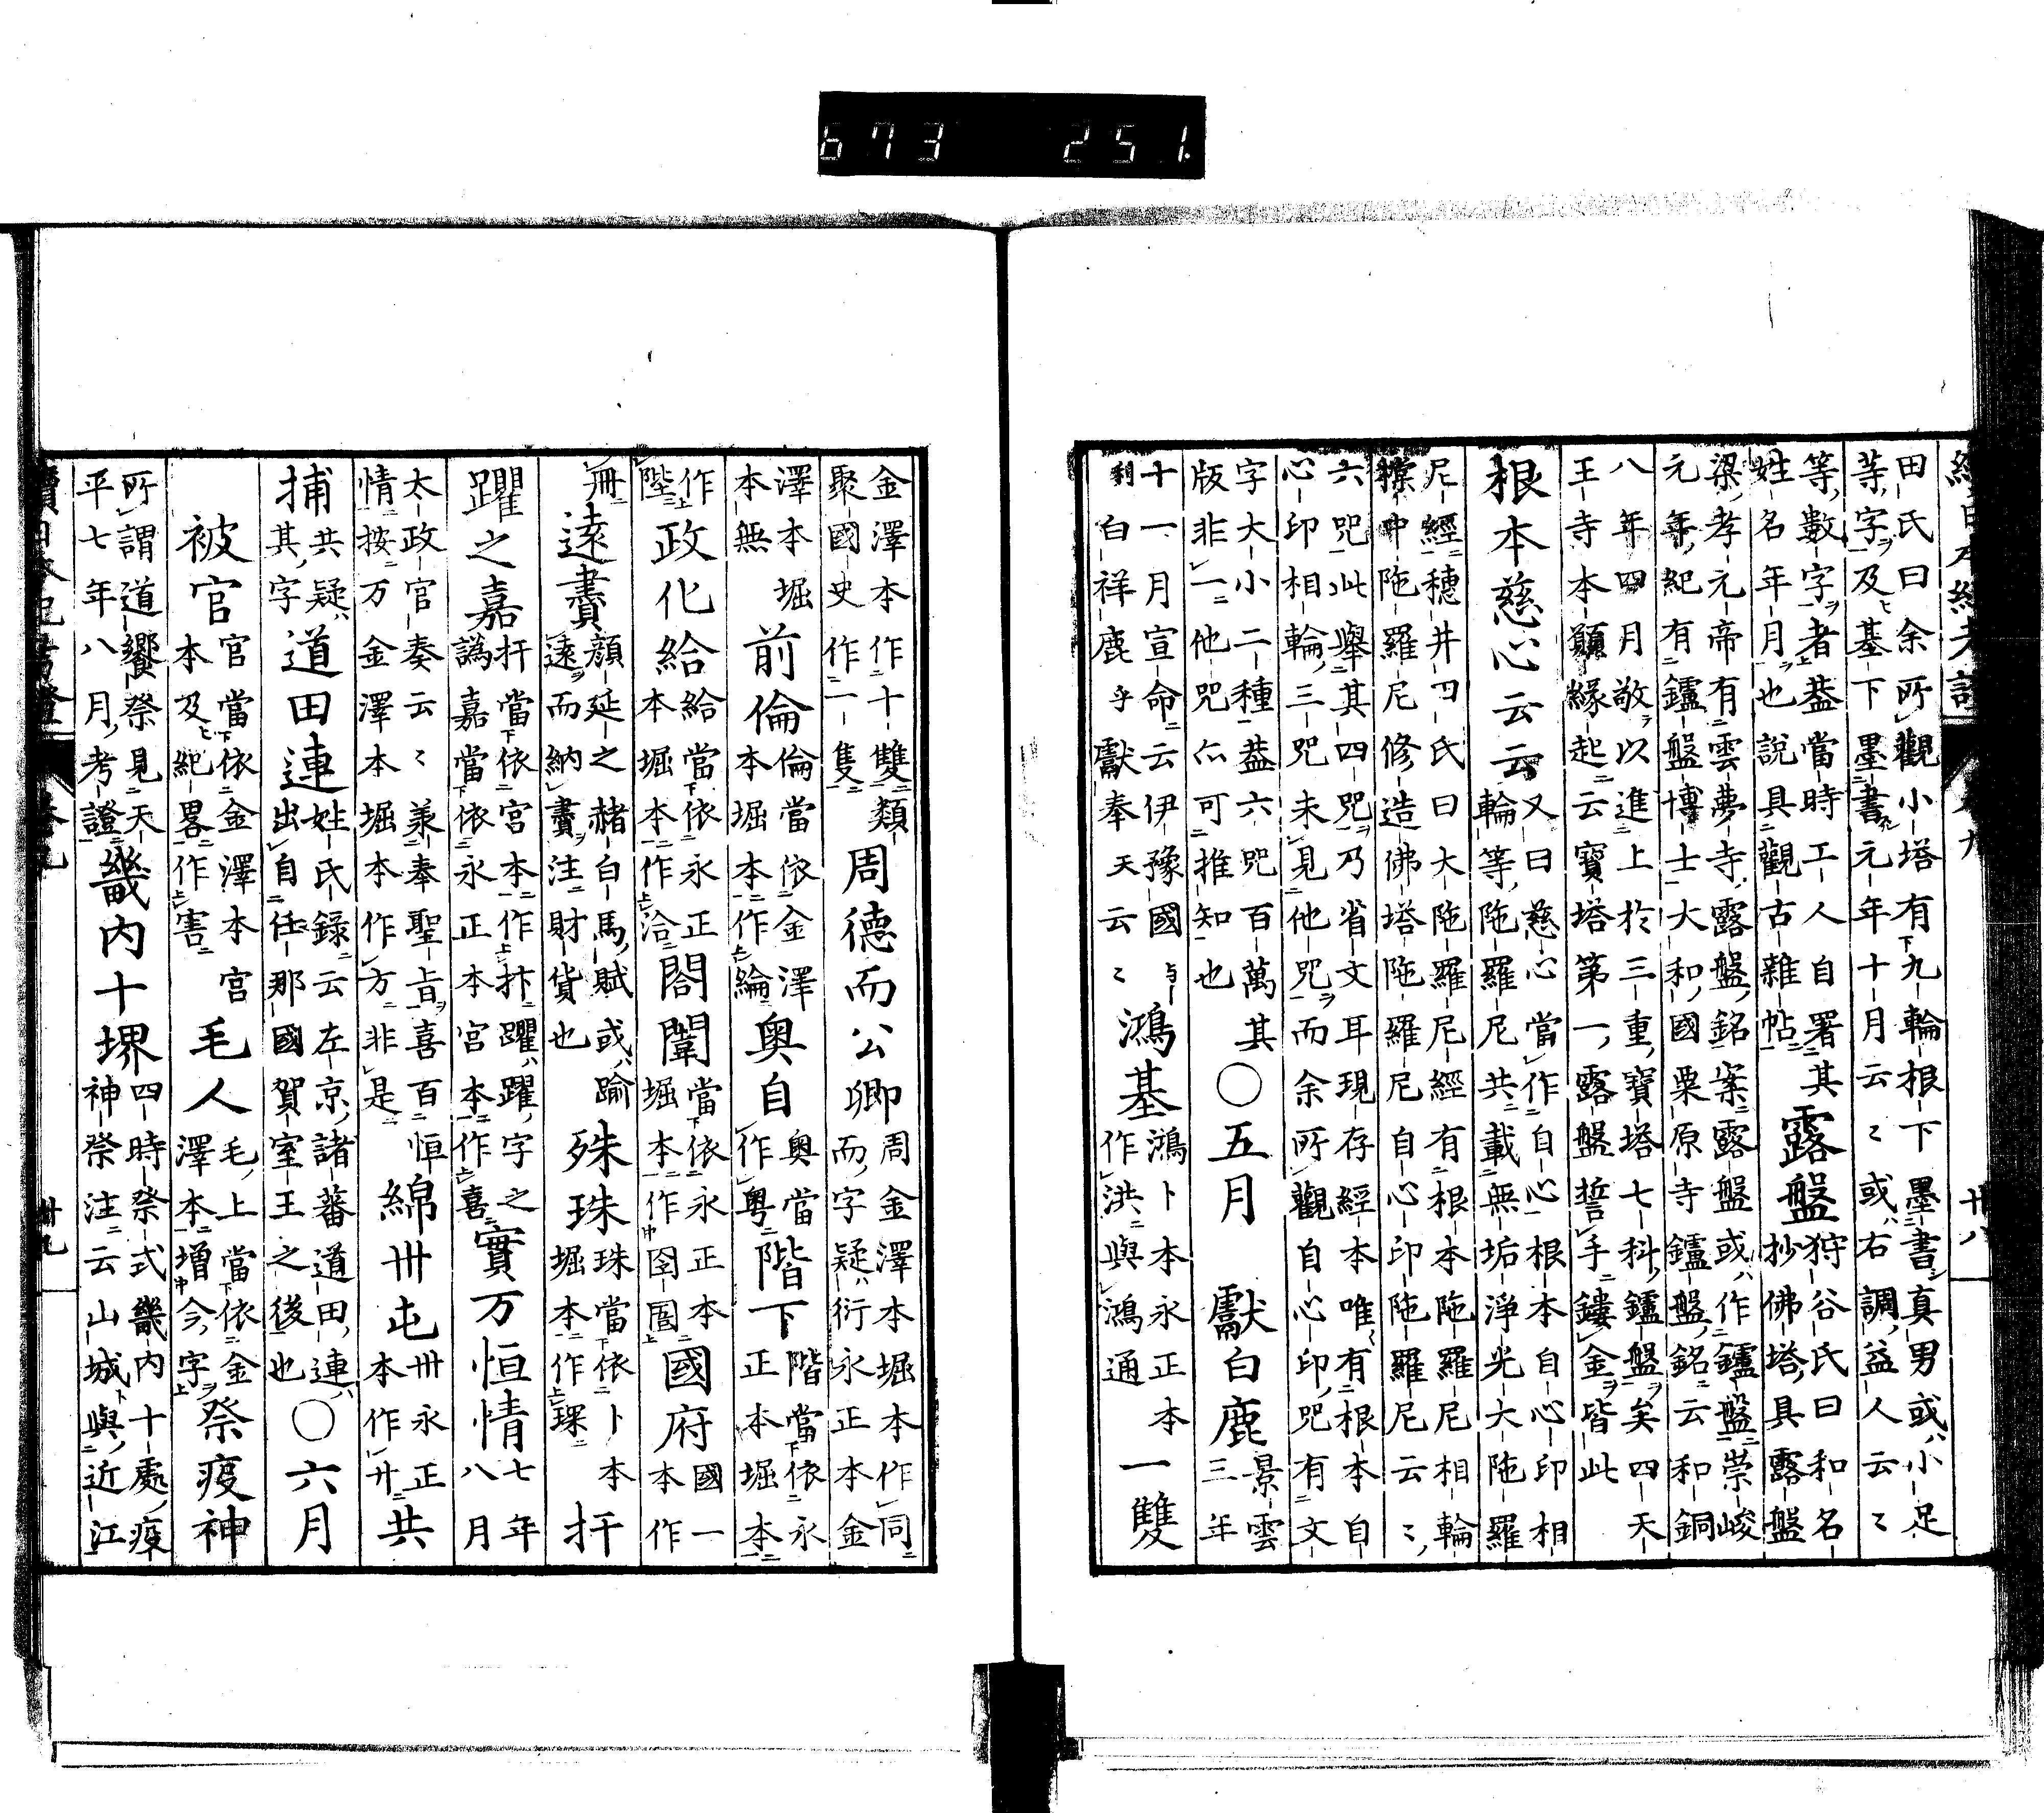 續日本紀考證 卷九 廿八
田氏曰余所觀小塔有九輪根下墨書真男或小足
等字及基下墨書元年十月云〻或右調益人云〻
等數字者葢當時工人自署其
姓名年月也說具觀古雜帖
露盤
狩谷氏曰和名
抄佛塔具露盤
梁孝元帝有雲夢寺露盤銘案露盤或作鑪盤崇峻
元年紀有鑪盤博士大和國栗原寺鑪盤銘云和銅
八年四月敬以進上於三重寶塔七科鑪盤矣四天
王寺本願緣起云寶塔第一露盤誓手鏤金皆此
根本慈心云云
又曰慈心當作自心根本自心印相
輪等陁羅尼共載無垢淨光大陁羅
尼經穗井田氏曰大陁羅尼經有根本陁羅尼相輪
樣中陁羅尼修造佛塔陁羅尼自心印陁羅尼云〻
六咒此擧其四咒乃省文耳現存經本唯有根本自
心印相輪三咒未見他咒而余所觀自心印咒有文
字大小二種葢六咒百萬其
版非一他咒亦可推知也
○五月 獻白鹿
景雲
三年
十一月宣命云伊豫國与
利白祥鹿乎獻奉天云〻
鴻基
鴻卜本永正本
作洪與鴻通
一雙
金澤本作十雙類
聚國史作一隻
周德而公卿
周金澤本堀本作同
而字疑衍永正本金
澤本堀
本無
前倫
倫當依金澤
本堀本作綸
奧自
奧當
作粤
階下
階當依永
正本堀本
作
陛
政化給
給當依永正
本堀本作洽
閤闈
當依永正本
堀本作閤闈
國府
國一
本作
冊
遠賮
顏延之赭白馬賦或踰
遠而納賮注財貨也
殊珠
珠當依卜本
堀本作琛
扞
躍之嘉
扞當依宮本作抃躍躍字之
譌嘉當依永正本宮本作喜
實万恒情
七年
八月
太政官奏云〻兼奉聖旨喜百恒
情按万金澤本堀本作方非是
綿卅屯
卅永正
本作廿
共
捕
共疑
其字
道田連
姓氏錄云左京諸蕃道田連
出自任那國賀室王之後也
○六月
被官
官當依金澤本宮
本及紀畧作害
毛人
毛上當依金
澤本增今字
祭疫神
所謂道饗祭見天
平七年八月考證
畿内十堺
四時祭式畿内十處疫
神祭注云山城與近江
續日本紀考證 卷九 廿九
673 251.